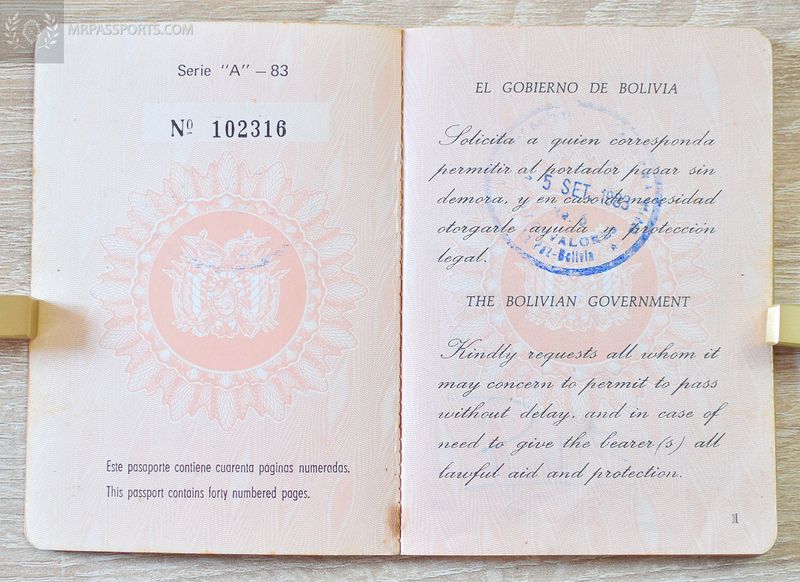 MRPASSPORTS.COM
Serie "A" – 83
Nº 102316
Este pasaporte contiene cuarenta páginas numeradas.
This passport contains forty numbered pages.
EL GOBIERNO DE BOLIVIA
Solicita a quien corresponda
permitir al portador pasar sin
demora, y en caso de necesidad
otorgarle ayuda y protección
legal.
5 SET. 1983
VALORES
Paz-Bolivia
THE BOLIVIAN GOVERNMENT
Kindly requests all whom it
may concern to permit to pass
without delay, and in case of
need to give the bearer(s) all
lawful aid and protection.
1